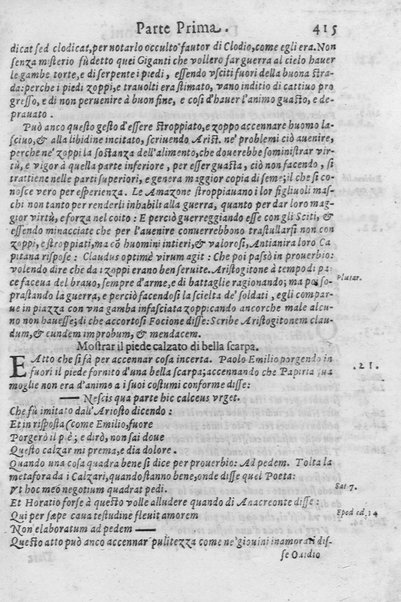 Parte Prima. 415
dicat sed clodicat, per notarlo occulto fautor di Clodio, come egli era. Non
senza misterio fù detto quei Giganti che vollero far guerra al cielo hauer
le gambe torte, e di serpente i piedi, essendo vsciti fuori della buona stra-
da: perche i piedi zoppi, e trauolti era stimato, vano inditio di cattiuo pro
gresso, e di non peruenire à buon fine, e così d'hauer l'animo guasto, e de-
prauato.
Può anco questo gesto d'essere stroppiato, e zoppo accennare huomo la-
sciuo, & alla libidine incitato, scriuendo Arist. ne' problemi ciò auenire,
perche ne' zoppi la sostanza dell'alimento, che douerebbe somministrar vir-
tù, e vigor à quella parte inferiore, per esser guasta, ciò non facendo, si
trattiene nelle parti superiori, e genera maggior copia di seme; il che si co-
nosce vero per esperienza. Le Amazone stroppiauano i lor figliuoli mas-
chi non tanto per renderli inhabili alla guerra, quanto per dar loro mag-
gior virtù, e forza nel coito: E perciò guerreggiando esse con gli Sciti, &
essendo minacciate che per l'auenire conuerrebbono trastullarsi non con
zoppi, e stroppiati, ma cõ huomini intieri, & valorosi, Antianira loro Ca
pitana rispose: Claudus optimè virum agit: Che poi passò in prouerbio:
volendo dire che da i zoppi erano ben seruite. Aristogitone à tempo di pa-
ce faceua del brauo, sempre d'arme, e di battaglie ragionando; ma po so-
prastando la guerra, e perciò facendosi la scielta de' soldati, egli compar-
ue in piazza con vna gamba infasciata zoppicando ancorche male alcu-
no non hauesse; di che accortosi Focione disse: Scribe Aristogitonem clau-
dum, & eundem improbum, & mendacem.
Plutar.
Mostrar il piede calzato di bella scarpa.
E Atto che si fà per accennar cosa incerta. Paolo Emilio porgendo in
fuori il piede fornito d'vna bella scarpa; accennando che Papiria sua
moglie non era d'animo a i suoi costumi conforme disse:
21.
— Nescis qua parte hic calceus vrget.
Che fù imitato dall'Ariosto dicendo:
Et in risposta (come Emilio, fuore
Porgerò il piè; e dirò, non sai doue
Questo calzar mi prema, e dia dolore.
Quando una cosa quadra bene si dice per prouerbio: Ad pedem. Tolta la
metafora da i Calzari, quando stanno bene, onde disse quel Poeta:
Vt hoc meo negotium quadrat pedi. Sat 7.
Et Horatio forse à questo volle alludere quando di Anacreonte disse:
Qui per sæpe caua testudine fleuit amorem Epod ed. 14
Non elaboratum ad pedem —
Questo atto può anco accennar pulitezza come ne' giouini inamorati dis-
se Ouidio